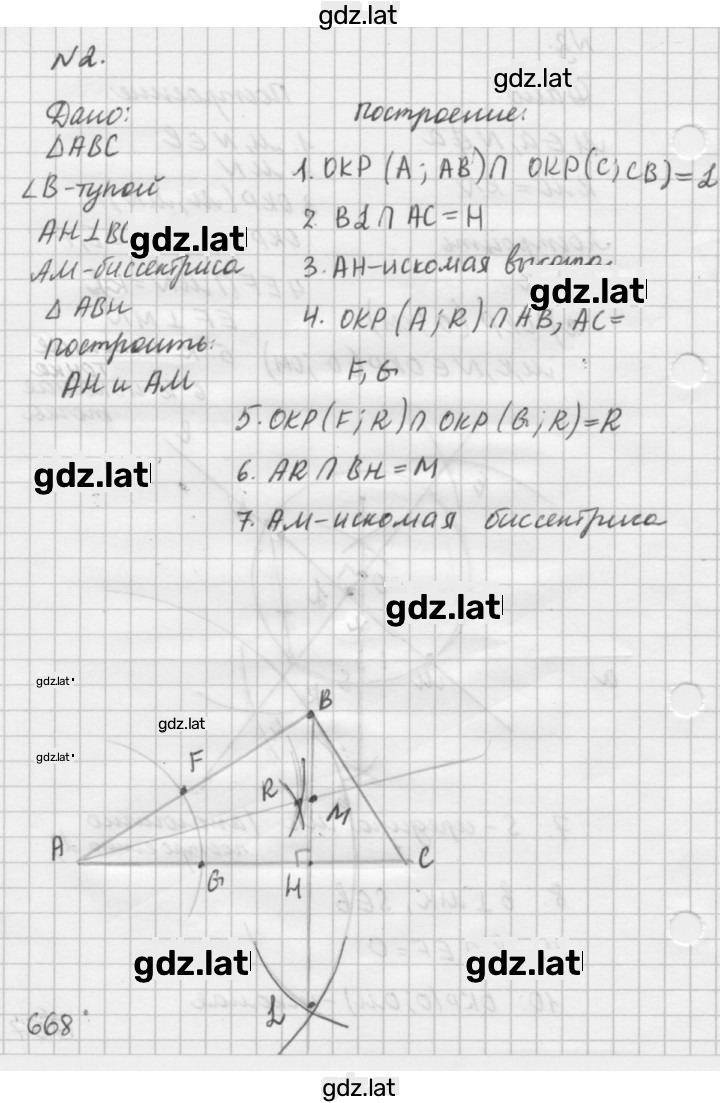 gdz.lat
N2.
gdz.lat
Дано:
ΔABC
∠B-тупой
AH⊥BC
gdz.lat
AM-биссектриса
Δ ABH
построить:
AH и AM
Построение:
1. ОКР (A; AB)∩ ОКР(C; CB)=L
2. BL ∩ AC = H
3. AH-искомая высота.
gdz.lat
4. ОКР (A; R) ∩ AB, AC =
F, G
5. ОКР (F; R)∩ ОКР (G; R)=R
gdz.lat
6. AR ∩ BH = M
7. AM-искомая биссектриса
gdz.lat
gdz.lat
B
gdz.lat
gdz.lat
F
R
M
A
C
G
H
gdz.lat
gdz.lat
L
668
gdz.lat